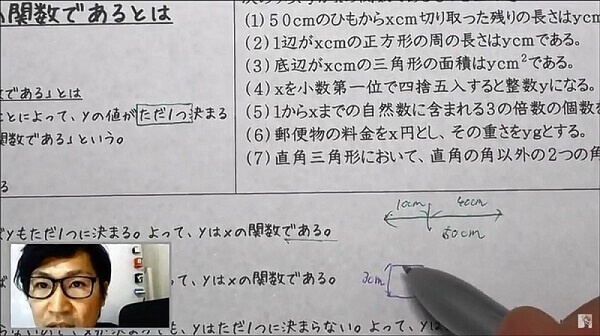 関数であるとは
(1)50cmのひもからxcm切り取った残りの長さはycm
(2)1辺がxcmの正方形の周の長さはycmである。
(3)底辺がxcmの三角形の面積はycm²である。
(4)xを小数第一位で四捨五入すると整数yになる。
(5)1からxまでの自然数に含まれる3の倍数の個数を
(6)郵便物の料金をx円とし、その重さをygとする。
(7)直角三角形において、直角の角以外の2つの角
である」とは
ことによって、yの値がただ1つ決まる
関数である」という。
る
yもただ1つに決まる。よって、yはxの関数である。
10cm 40cm
50cm
って、yはxの関数である。
3cm
も、yはただ1つに決まらない。よって、yは